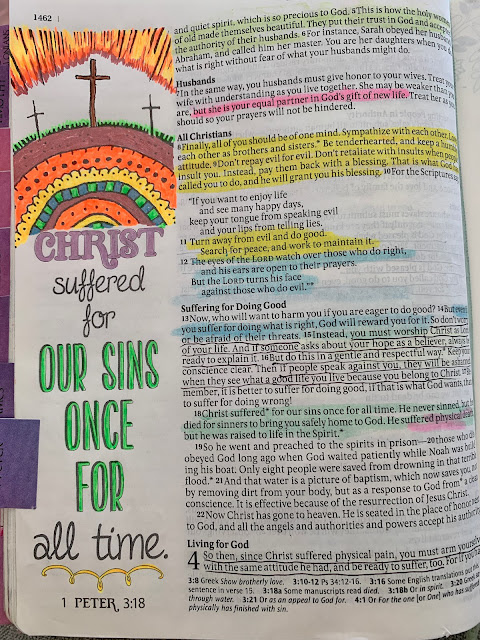 1462
and quiet spirit, which is so precious to God. 5This is how the holy women
of old made themselves beautiful. They put their trust in God and accepted
the authority of their husbands. 6For instance, Sarah obeyed her husband,
Abraham, and called him her master. You are her daughters when you do
what is right without fear of what your husbands might do.
Husbands
7In the same way, you husbands must give honor to your wives. Treat your
wife with understanding as you live together. She may be weaker than you
are, but she is your equal partner in God's gift of new life. Treat her as you
should so your prayers will not be hindered.
All Christians
8Finally, all of you should be of one mind. Sympathize with each other. Love
each other as brothers and sisters.* Be tenderhearted, and keep a humble
attitude. 9Don't repay evil for evil. Don't retaliate with insults when people
insult you. Instead, pay them back with a blessing. That is what God has
called you to do, and he will grant you his blessing. 10For the Scriptures say,
"If you want to enjoy life
and see many happy days,
keep your tongue from speaking evil
and your lips from telling lies.
11 Turn away from evil and do good.
Search for peace, and work to maintain it.
12 The eyes of the LORD watch over those who do right,
and his ears are open to their prayers.
But the LORD turns his face
against those who do evil."*
Suffering for Doing Good
13Now, who will want to harm you if you are eager to do good? 14But even if
you suffer for doing what is right, God will reward you for it. So don't worry
or be afraid of their threats. 15Instead, you must worship Christ as Lord
of your life. And if someone asks about your hope as a believer, always be
ready to explain it. 16But do this in a gentle and respectful way.* Keep your
conscience clear. Then if people speak against you, they will be ashamed
when they see what a good life you live because you belong to Christ.
member, it is better to suffer for doing good, if that is what God wants, than
to suffer for doing wrong!
18Christ suffered* for our sins once for all time. He never sinned, but he
died for sinners to bring you safely home to God. He suffered physical death,
but he was raised to life in the Spirit.*
19So he went and preached to the spirits in prison—20those who
obeyed God long ago when God waited patiently while Noah was build-
ing his boat. Only eight people were saved from drowning in that terrible
flood.* 21And that water is a picture of baptism, which now saves you, not
by removing dirt from your body, but as a response to God from* a clean
conscience. It is effective because of the resurrection of Jesus Christ.
22Now Christ has gone to heaven. He is seated in the place of honor next
to God, and all the angels and authorities and powers accept his authority.
Living for God
4 So then, since Christ suffered physical pain, you must arm yourselves
with the same attitude he had, and be ready to suffer, too. For if you
3:8 Greek Show brotherly love. 3:10-12 Ps 34:12-16. 3:16 Some English translations put this
sentence in verse 15. 3:18a Some manuscripts read died. 3:18b Or in spirit. 3:20 Greek
through water. 3:21 Or as an appeal to God for. 4:1 Or For the one [or One] who has suffered
physically has finished with sin.
CHRIST
suffered
for
OUR SINS
ONCE
FOR
all time.
1 PETER 3:18